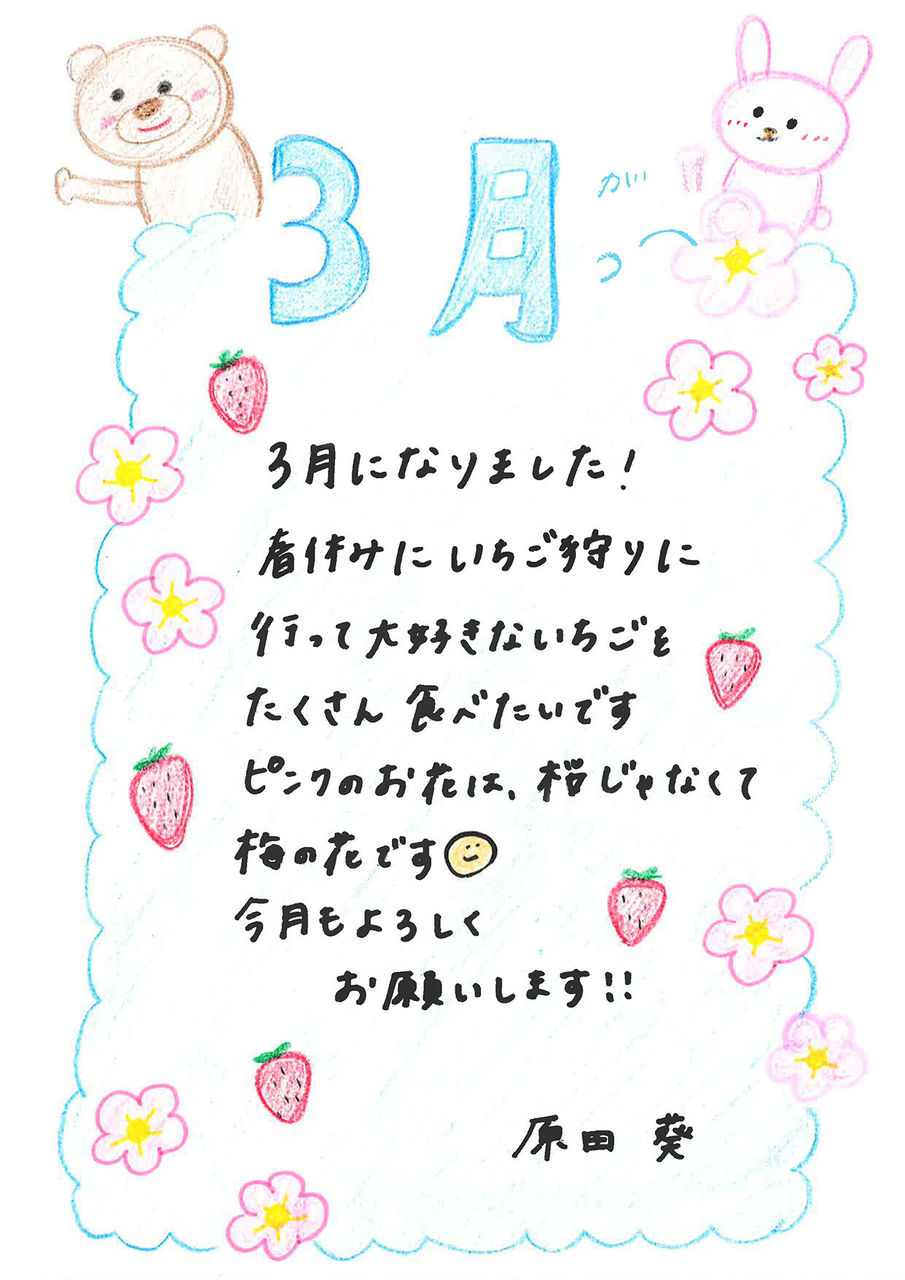 3月
3月になりました！
春休みにいちご狩りに
行って大好きないちごを
たくさん食べたいです
ピンクのお花は、桜じゃなくて
梅の花です
今月もよろしく
お願いします!!
原田 葵